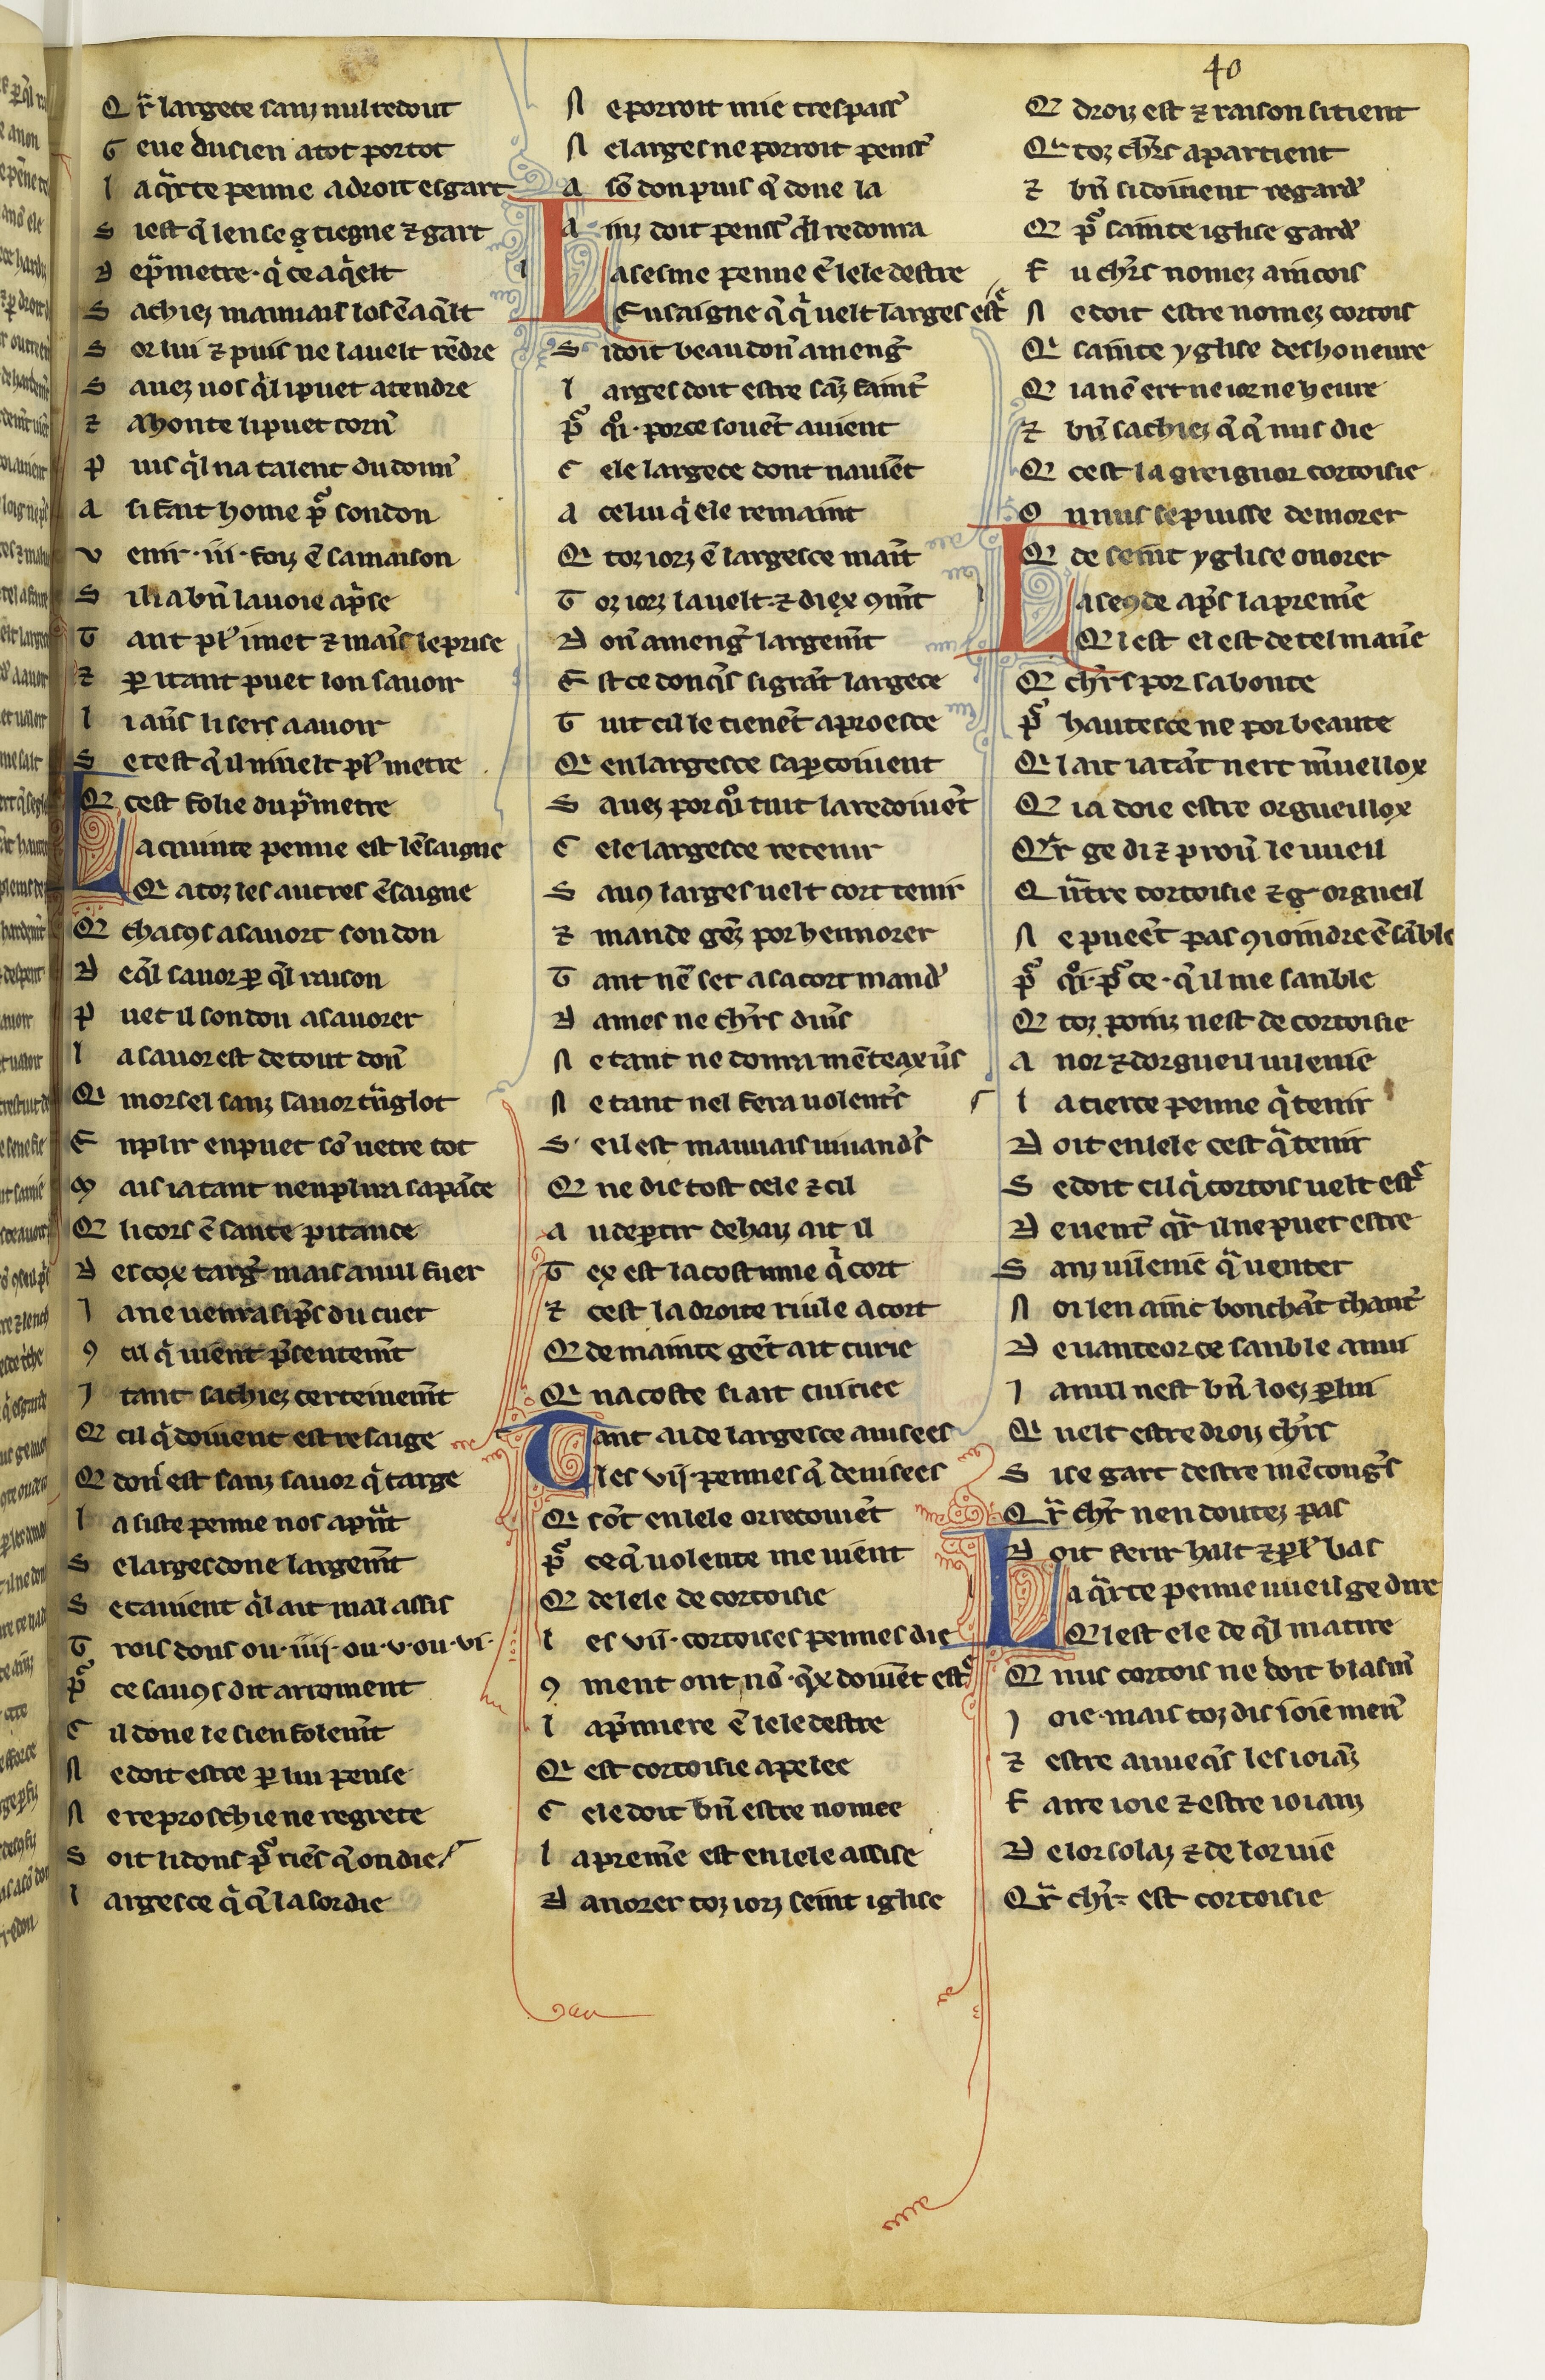 40
Qr largece sanz nul redout
Geue du sien a tot por tot
La qarte penne a droit esgart
Si est q len se g tiegne ⁊ gart
De pmetre · q ce aqelt
Sachiez mauuais los ē aqlt
Sor lui ⁊ puis ne la uelt rēdre
Sauez uos ql i puet atendre
⁊ A honte li puet torn
Puis ql na talent du donn
A si fait home por son don
Venir · iii · foiz ē sa maison
Sili a bn la uoie aprise
Tant pl i met ⁊ mains le prise
⁊ par itant puet lon sauoir
Li auers li sers a auoir
Set est q il ni uelt pl metre
Q cest folie du pmetre
La cuinte penne est lēsaigne
Q a toz les autres ēsaigne
Q chascs asauort son don
De ql sauor par ql raison
Puet il son don asauorer
La sauor est de tout don
Qi morsel sanz sauor trāglot
Enplir en puet sō uetre tot
Mais ia tant nenplira sa pāce
Q li cors ē sante pitance
Des cox targ mais a nul fuer
Ja ne uenra si pres du cuer
9 cil q uient psentemt
Jtant sachiez certeinemt
Q cil q doiuent estre saige
Q don est sanz sauor q targe
La siste penne nos aprāt
Se larges done largemt
Se tauient ql ait mal assis
Trois dons ou · iiii · ou · v · ou · vi ·
Por ce sauos dit arroment
Cil done le sien folemt
Ne doit estre par lui pense
Ne reproschie ne regrete
Soit li dons por riēs q on die
Largesce q q la sordie
Ne porroit mie trespass
Ne larges ne porroit pens
A sō don puis q done la
Ainz doit penss ql redonra
La sesme penne ē lele destre
Ensaigne q q uelt larges estre
Si doit beau don a meng
Larges doit estre saz faint
Por qoi · por ce souēt auient
Cele largece dont nauiēt
A celui q ele remaint
Qi toz iorz ē largesce maīt
Toz iorz la uelt · ⁊ diex 9māt
Don a meng largemt
Est ce doncs si grāt largece
Tuit cil le tienēt a proesce
Qi en largesce sapercoiuent
Sauez por qoi tuit la redoiuēt
Cele largesce retenir
Saus larges uelt cort tenir
⁊ mande gēz por hennorer
Tant nē set a sa cort mand
Dames ne chrs diuers
Ne tant ne donra mēteax uers
Ne tant nel fera uolentrs
Seil est mauuais uiuandrs
Q ne die tost cele ⁊ cil
Au departir dehaz ait il
Tex est la costume q cort
⁊ cest la droite riule a cort
Q de mainte gēt ait curie
Qi na coste si art cuiriee
Tant ai de largesce auisees
Les vii · pennes q deuisees
Qi sōt en lele or recouiēt
Por ce q uolente me uient
Q de lele de cortoisie
Les vii · cortoises pennes die
9 ment ont nō · qx doiuēt estre
La pmiere ē lele destre
Qi est cortoisie apelee
Cele doit bn estre nomee
La premie est en lele assise
Danorer toz iorz seint iglise
Q droiz est ⁊ raison si tient
Qa toz chrs apartient
⁊ bn si doiuent regard
Q por sainte iglise gard
Fu chrs nomez aincois
Ne doit estre nomez cortois
Qi sainte yglise deshoneure
Qi ia nē ert ne ior ne heure
⁊ bn sachiez q q nus die
Q cest la greignor cortoisie
O nnus se puisse demorer
Q de seint yglise onorer
La segōde aps la premie
Ql est el est de tel manie
Q chrs por sa bonte
Por hautesce ne por beaute
Ql ait ia tāt nert mueillox
Q ia doie estre orgueillox
Qr ge di ⁊ prouer le uueil
Q ntre cortoisie ⁊ g orgueil
Ne pueēt pas 9ioindre ēsāble
Por qoi · por ce · q il me sanble
Q toz poinz nest de cortoisie
A nor ⁊ dorgueil uilenie
La tierce penne q tenir
Doit en lele cest q tenir
Se doit cil q cortois uelt estre
De uent qr il ne puet estre
Sanz uilenie q uenter
Noi len ainc bon chāt chant
De uanteor ce sanble anui
Ja nul nest bn loez par lui
Qi uelt estre droiz chrs
Si se gart destre mēcongrs
Qr chr nen doutez pas
Doit ferir halt ⁊ parl bas
La qarte penne uueil ge dire
Ql est ele de ql matire
Q nus cortois ne doit blasm
Joie · mais toz dis ioie men
⁊ estre auuecqs les ioiāz
Faire ioie ⁊ estre ioianz
De lor solaz ⁊ de lor uie
Qr chr est cortoisie